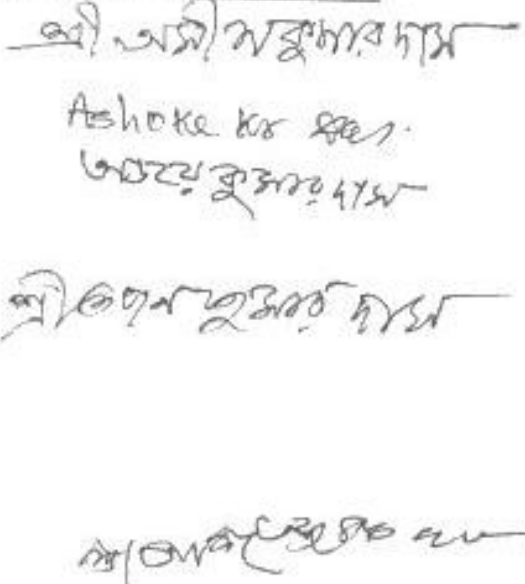 শ্রী অসীম কুমার দাস
Ashoke Kr Das.
অজয় কুমার দাস
শ্রী তপন কুমার দাস